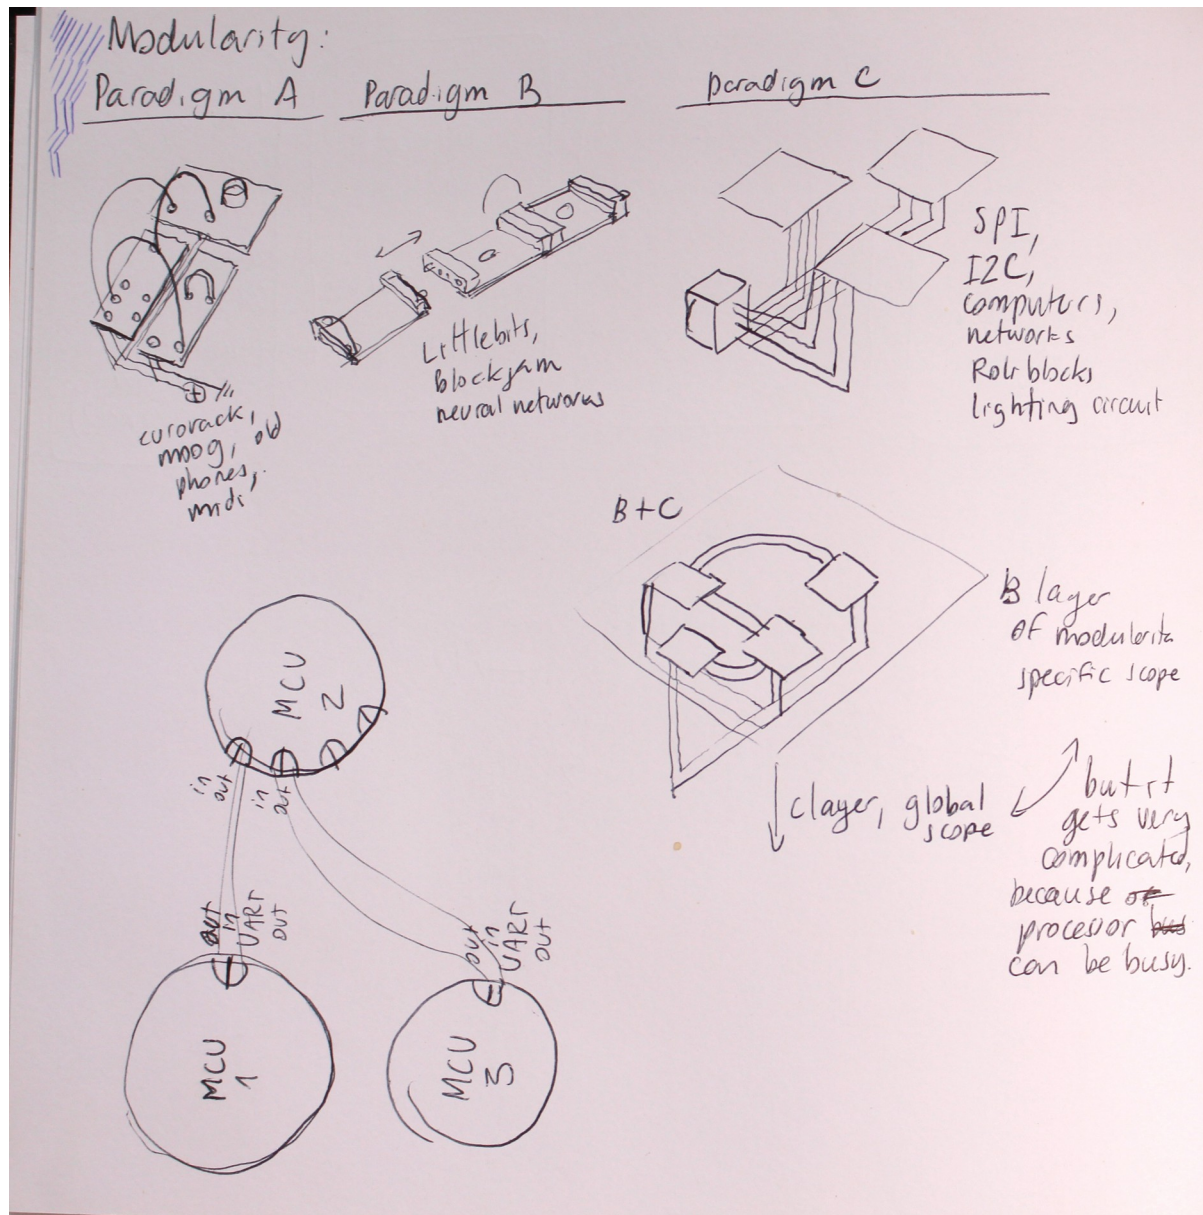 Modularity:
Paradigm A
Paradigm B
Paradigm C
eurorack,
moog, old
phones,
midi
Littlebits,
blockjam
neural networks
SPI,
I2C,
computers,
networks
Roli blocks
lighting circuit
B+C
B layer
of modularita
specific scope
C layer, global
scope
but it
gets very
complicated,
because
processor
can be busy.
MCU
2
in
out
in
out
out
in
UART
out
out
in
UART
out
MCU
1
MCU
3